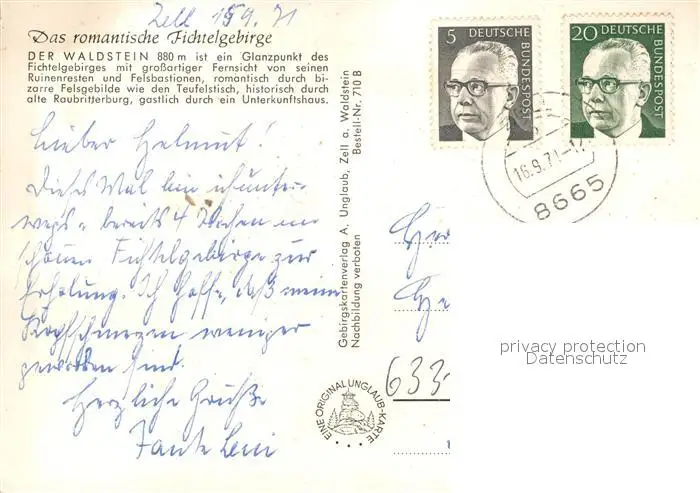 Zell 15.9.71
Das romantische Fichtelgebirge
DER WALDSTEIN 880 m ist ein Glanzpunkt des
Fichtelgebirges mit großartiger Fernsicht von seinen
Ruinenresten und Felsbastionen, romantisch durch bi-
zarre Felsgebilde wie den Teufelstisch, historisch durch
alte Raubritterburg, gastlich durch ein Unterkunftshaus.
Lieber Helmut!
Dieses Mal bin ich unter-
wegs bereits 4 Wochen im
schönen Fichtelgebirge zur
Erholung. Ich hoffe, daß meine
Kopfschmerzen weniger
geworden sind.
Herzliche Grüße
Tante Leni
Gebirgskartenverlag A. Unglaub, Zell a. Waldstein
Nachbildung verboten
Bestell-Nr. 710 B
EINE ORIGINAL UNGLAUB-KARTE
5 DEUTSCHE BUNDESPOST
20 DEUTSCHE BUNDESPOST
16.9.71-17
8665
633
privacy protection
Datenschutz